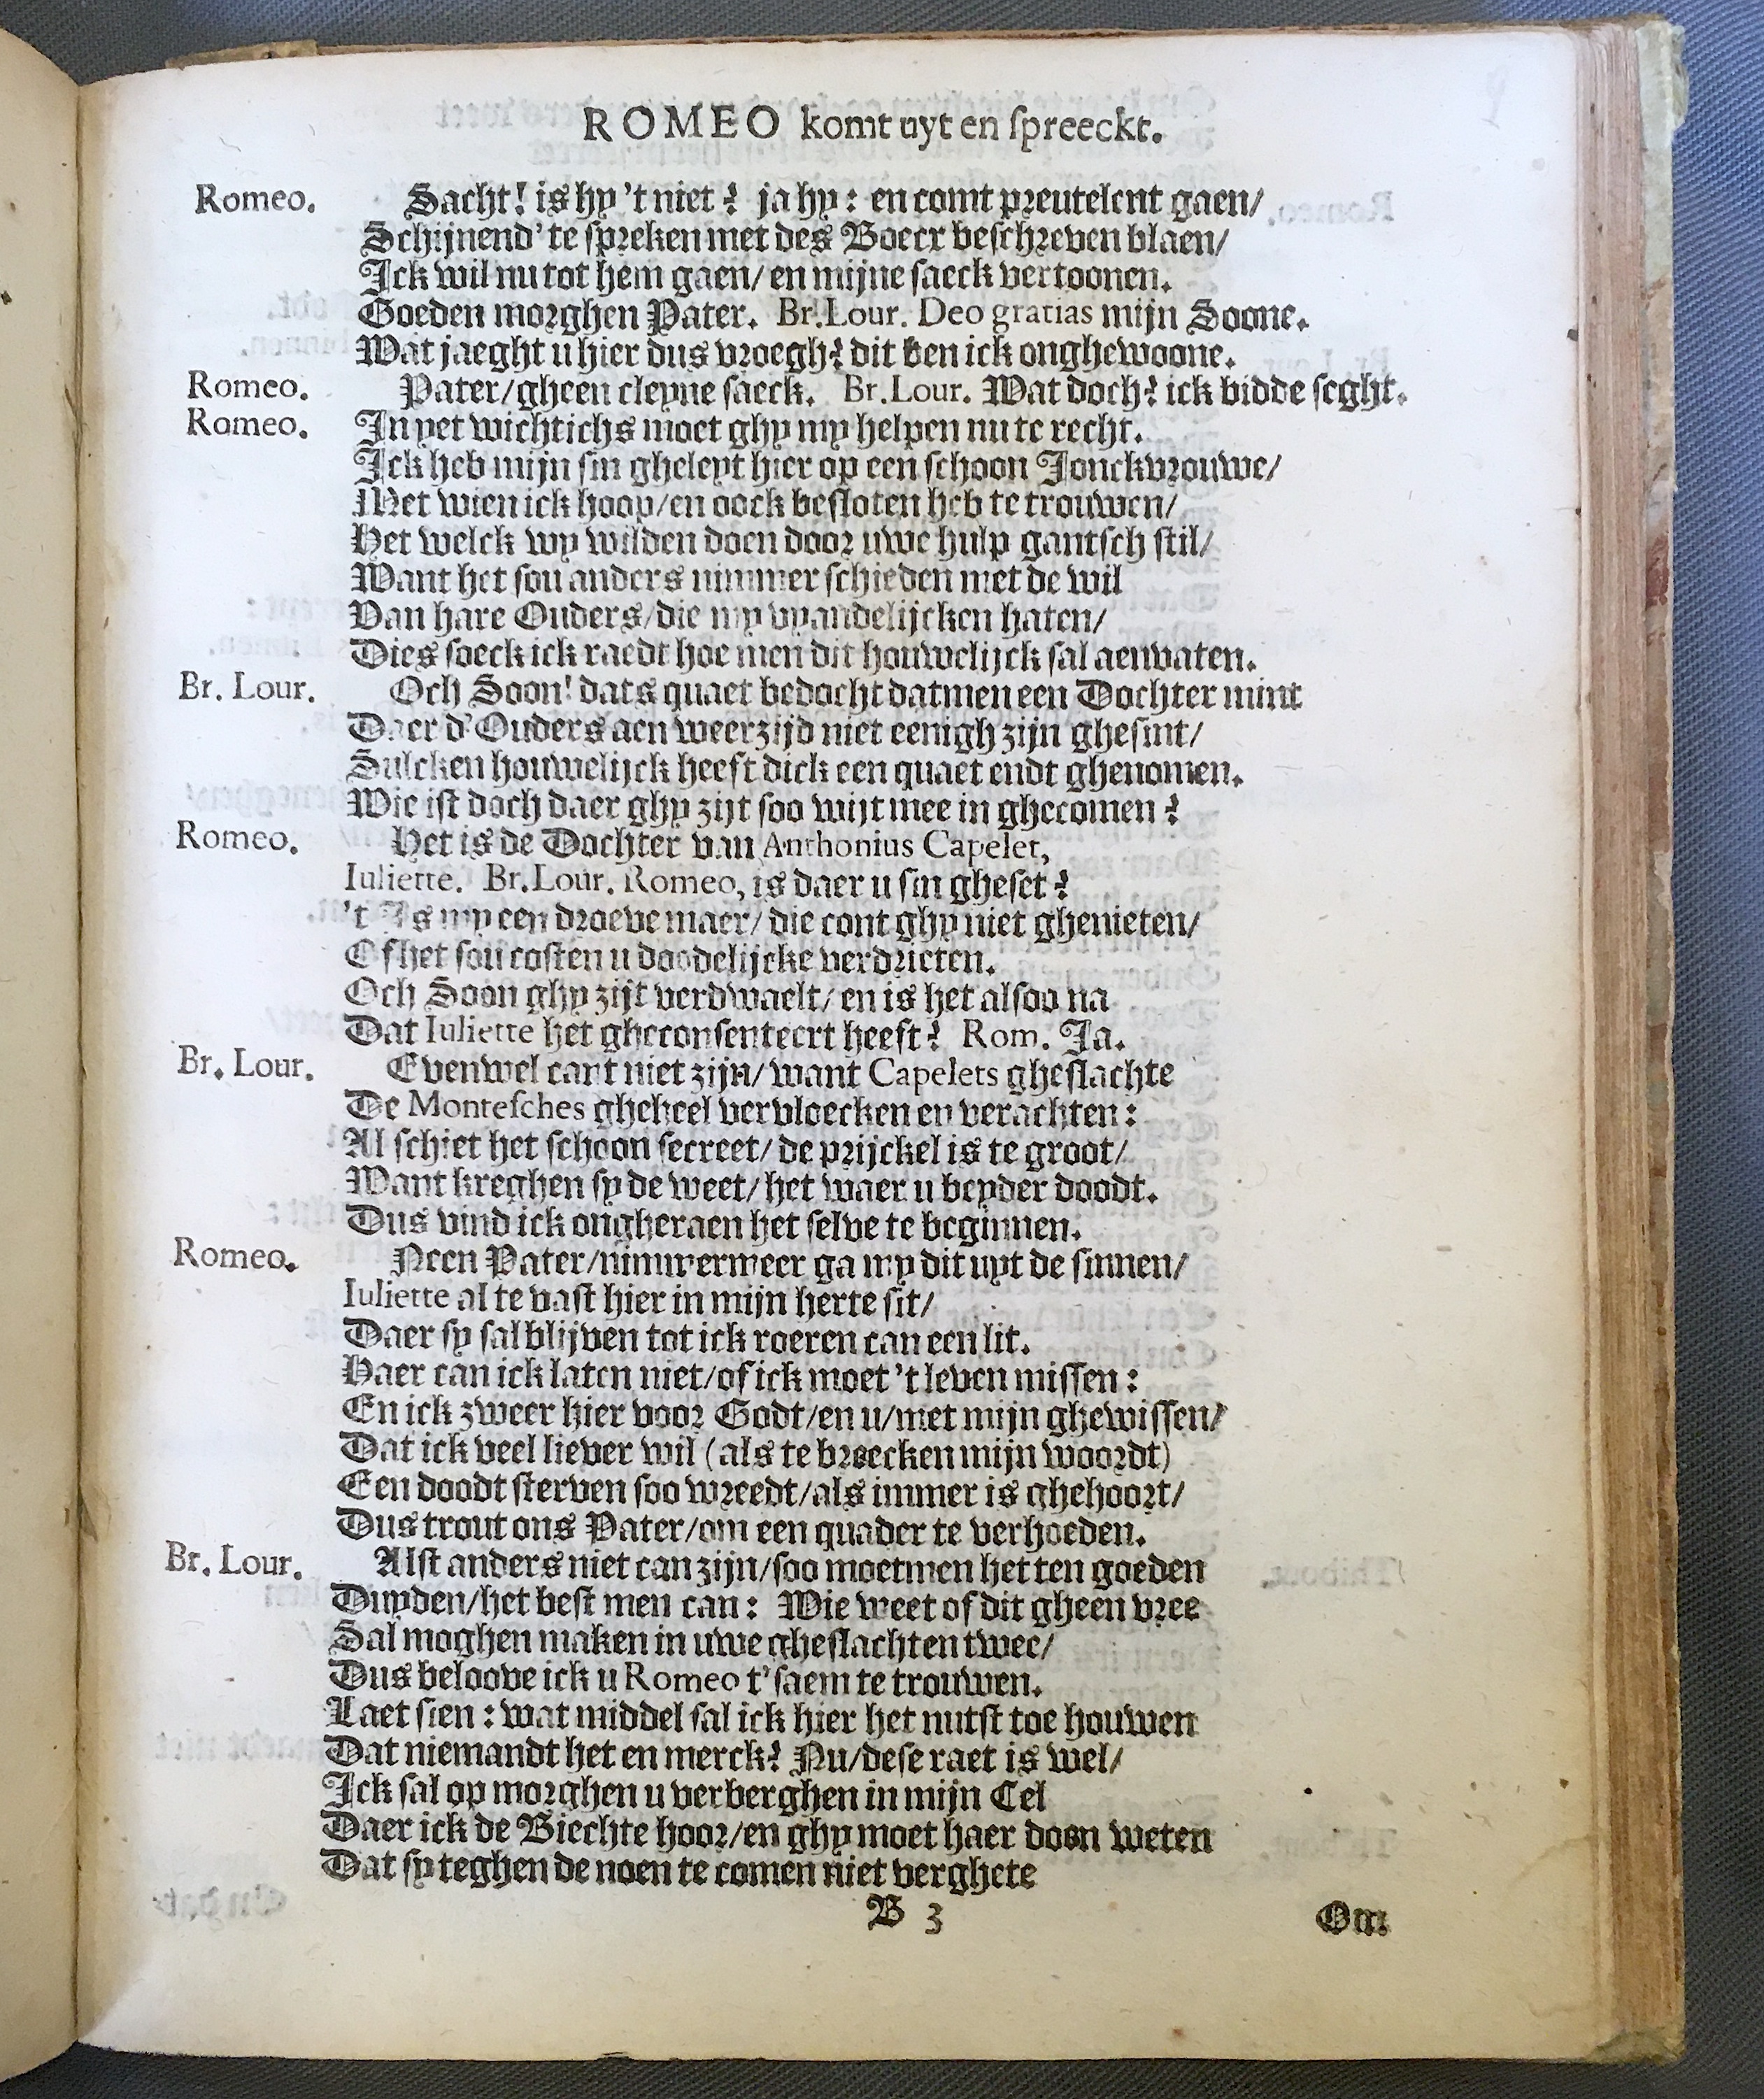 ROMEO komt uyt en spreeckt.
Romeo. Sacht! is hy 't niet? ja hy: en comt preutelent gaen/
Schijnend' te spreken met des Boecx beschreven blaen/
Ick wil nu tot hem gaen/ en mijne saeck vertoonen.
Goeden morghen Pater. Br. Lour. Deo gratias mijn Soone.
Wat jaeght u hier dus vroegh? dit ben ick onghewoone.
Romeo. Pater/ gheen cleyne saeck. Br. Lour. Wat doch? ick bidde seght.
Romeo. In yet wichtichs moet ghy my helpen nu te recht.
Ick heb mijn sin gheleyt hier op een schoon Jonckvrouwe/
Met wien ick hoop/ en oock besloten heb te trouwen/
Het welck wy wilden doen door uwe hulp gantsch stil/
Want het sou anders nimmer schieden met de wil
Van hare Ouders/ die my vyandelijcken haten/
Dies soeck ick raedt hoe men dit houwelijck sal aenvaten.
Br. Lour. Och Soon! dats quaet bedocht datmen een Dochter mint
Daer d'Ouders aen weerzijd niet eenigh zijn ghesint/
Sulcken houwelijck heeft dick een quaet endt ghenomen.
Wie ist doch daer ghy zijt soo wijt mee in ghecomen?
Romeo. Het is de Dochter van Anthonius Capelet,
Iuliette. Br. Lour. Romeo, is daer u sin gheset?
't Is my een droeve maer/ die cont ghy niet ghenieten/
Of het sou costen u doodelijcke verdrieten.
Och Soon ghy zijt verdwaelt/ en is het alsoo na
Dat Iuliette het gheconsenteert heeft? Rom. Ja.
Br. Lour. Evenwel cant niet zijn/ want Capelets gheslachte
De Montesches gheheel vervloecken en verachten:
Al schiet het schoon secreet/ de prijckel is te groot/
Want kreghen sy de weet/ het waer u beyder doodt.
Dus vind ick ongheraen het selve te beginnen.
Romeo. Neen Pater/ nimmermeer ga my dit uyt de sinnen/
Iuliette al te vast hier in mijn herte sit/
Daer sy sal blijven tot ick roeren can een lit.
Haer can ick laten niet/ of ick moet 't leven missen:
En ick zweer hier voor Godt/ en u/ met mijn ghewissen/
Dat ick veel liever wil (als te breecken mijn woordt)
Een doodt sterven soo wreedt/ als immer is ghehoort/
Dus trout ons Pater/ om een quader te verhoeden.
Br. Lour. Alst anders niet can zijn/ soo moetmen het ten goeden
Duyden/ het best men can: Wie weet of dit gheen vree
Sal moghen maken in uwe gheslachten twee/
Dus beloove ick u Romeo t'saem te trouwen.
Laet sien: wat middel sal ick hier het nutst toe houwen
Dat niemandt het en merck? Nu/ dese raet is wel/
Ick sal op morghen u verberghen in mijn Cel
Daer ick de Biechte hoor/ en ghy moet haer doen weten
Dat sy teghen de noen te comen niet verghete
B 3 Om